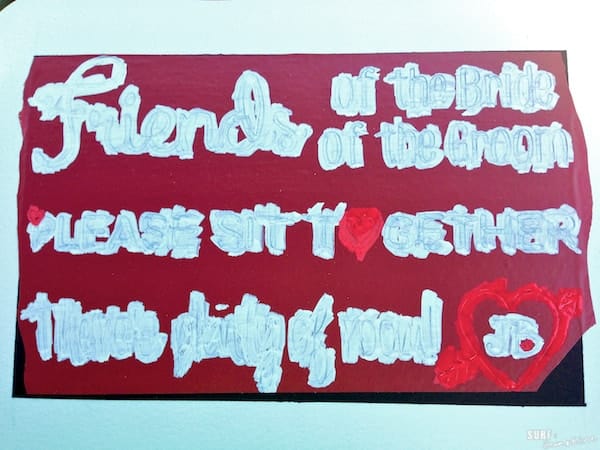 Friends
of the Bride
of the Groom
PLEASE SIT TOGETHER
There's plenty of room!
JB
SURF &